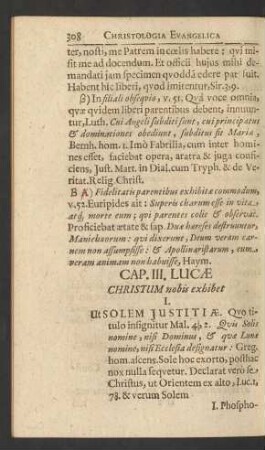 308 CHRISTOLOGIA EVANGELICA
ter, nosti, me Patrem in cœlis habere; qui mi-
sit me ad docendum. Et officii hujus mihi de-
mandati jam specimen quoddā edere par fuit.
Habent hîc liberi, quod imitentur, Sir. 3.9.
β) In filiali obsequio, v. 51. Quâ voce omnia,
quæ qvidem liberi parentibus debent, innuun-
tur, Luth. Cui Angeli subditi sunt, cui principatus
& dominationes obediunt, subditus fit Mariæ,
Bernh. hom. 1. Imò Fabrilia, cum inter homi-
nes esset, faciebat opera, aratra & juga confi-
ciens, Just. Mart. in Dial. cum Tryph. & de Ve-
ritat. Relig. Christ.
B A) Fidelitatis parentibus exhibitæ commodum,
v. 52. Euripides ait: Superis charum esse in vita
atq; morte eum; qvi parentes colit & observat.
Proficiebat ætate & sap. Duæ hæreses destruuntur,
Manichæorum: qvi dixerunt, Deum veram car-
nem non assumpsisse: & Apollinaristarum, eum
veram animam non habuisse, Haym.
CAP. III, LUCÆ
CHRISTUM nobis exhibet
I.
Ut SOLEM JUSTITIÆ. Quo ti-
tulo insignitur Mal. 4, 2. Qvis Solis
nomine, nisi Dominus, & quæ Lunæ
nomine, nisi Ecclesia designatur: Greg.
hom. ascens. Sole hoc exorto, posthac
nox nulla seqvetur. Declarat verò se
Christus, ut Orientem ex alto, Luc. 1,
78. & verum Solem
I. Phospho-